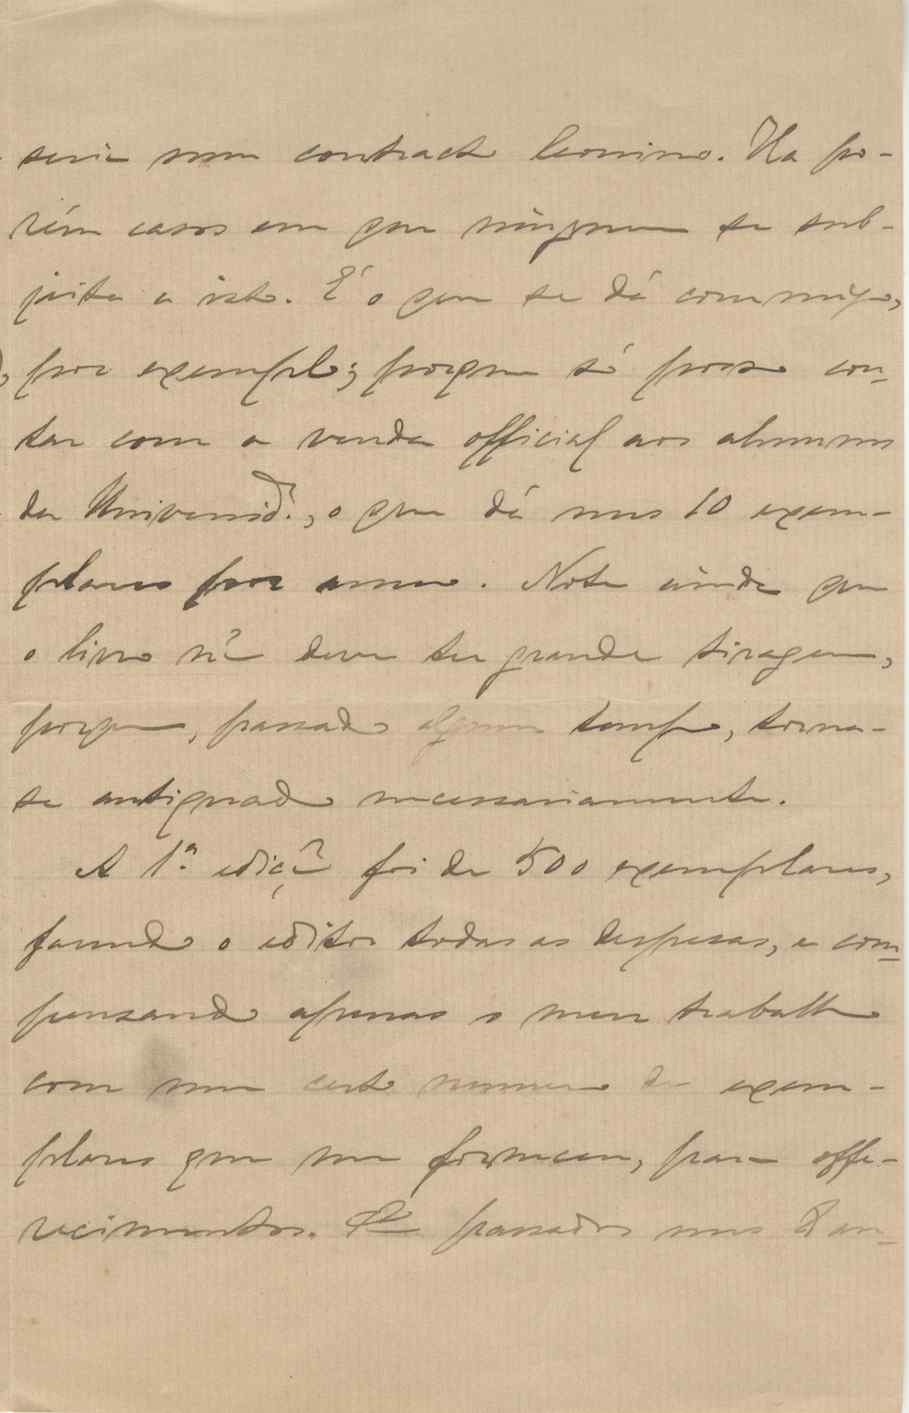 seria um contracto leonino. Ha po-
rém casos em que ninguem se sub-
jeita a isto. É o que se dá commigo,
por exemplo; porque só posso con-
tar com a venda official aos alumnos
da Universid.e, o que dá uns 10 exem-
plares por anno. Note ainda que
o livro ñ deve ter grande tiragem,
porque, passado algum tempo, torna-
se antiquado necessariamente.
A 1.ª ediçã foi de 500 exemplares,
fazendo o editor todas as despesas, e com-
pensando apenas o meu trabalho
com um certo numero de exem-
plares que me forneceu, para offe-
recimentos. passados uns 8 an-